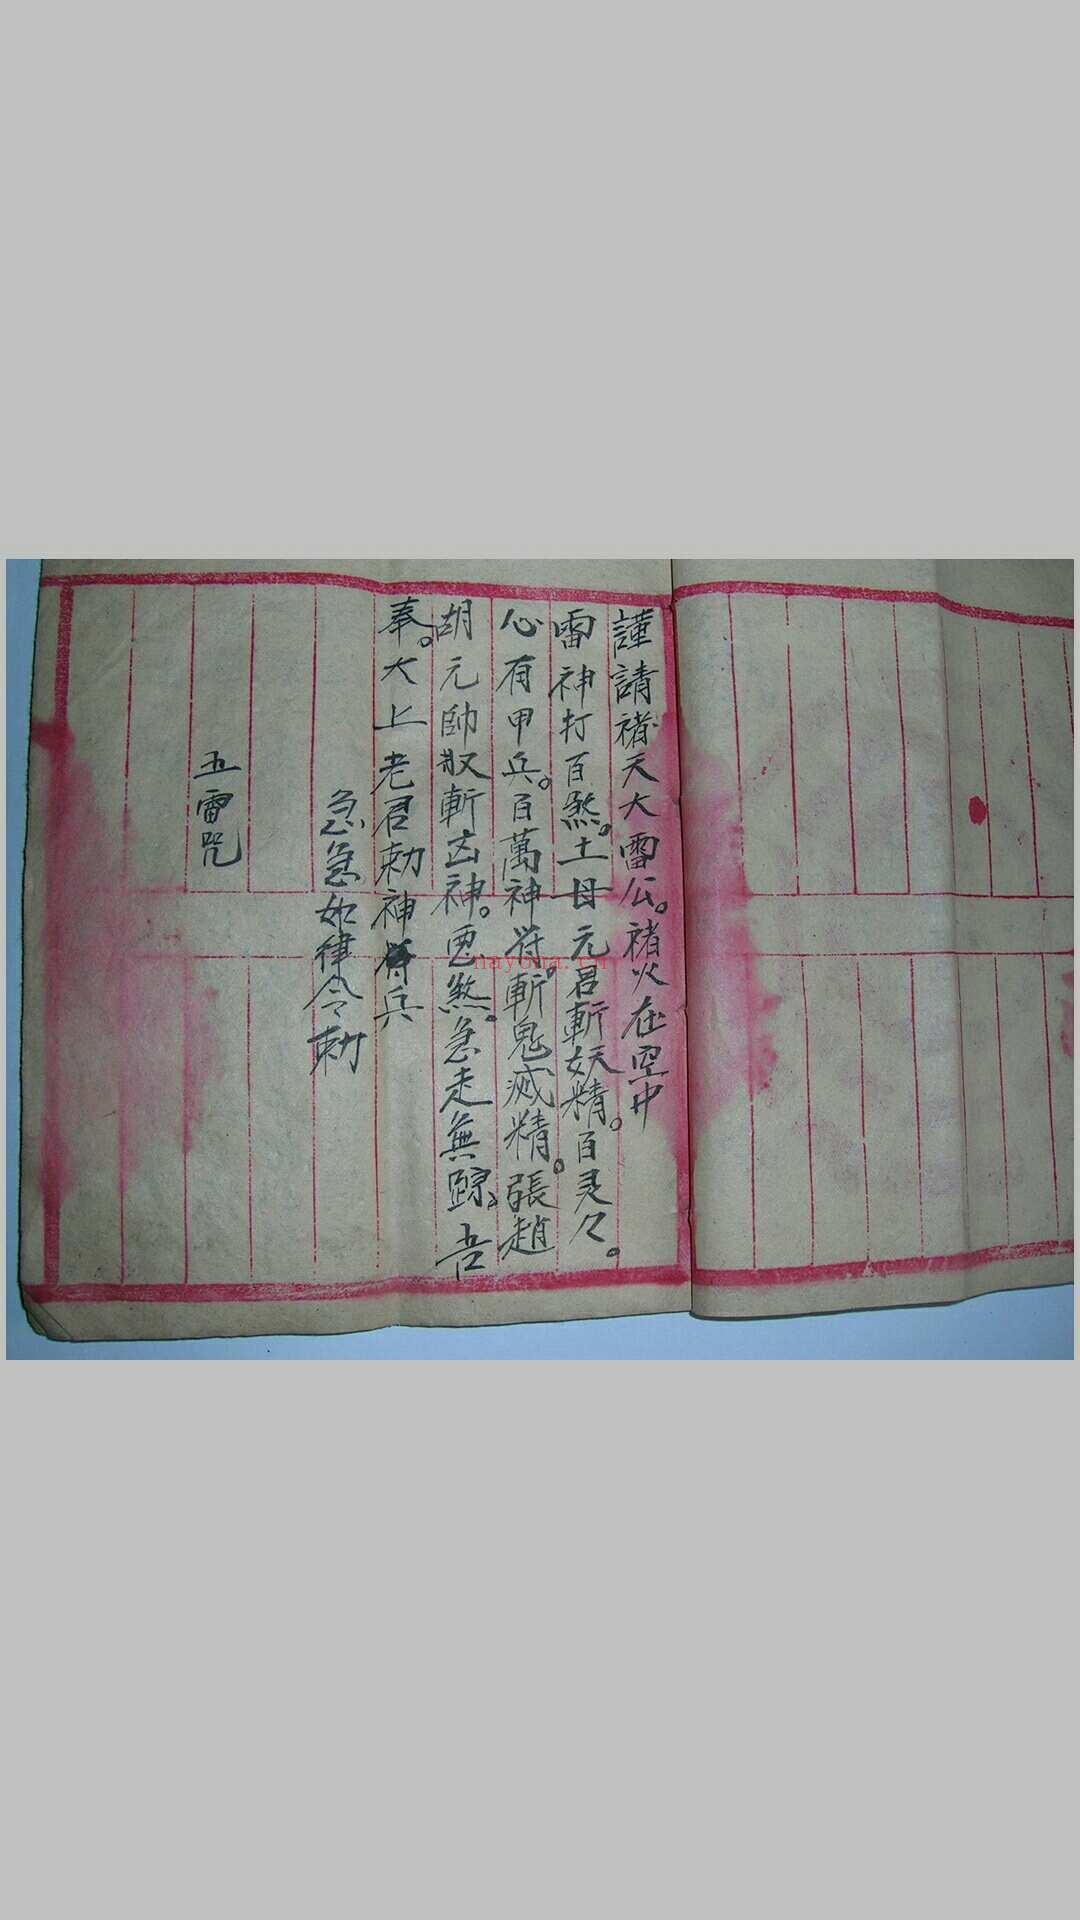 謹請褚天大雷公。褚火在空中
雷神打百煞。土母元君斬妖精。百灵々。
心有甲兵。百萬神符。斬鬼滅精。張趙
胡元帥馭斬凶神。惡煞。急走無踪。吉
奉。大上老君勅神將兵
急急如律令勅
五雷咒
nayona.cn